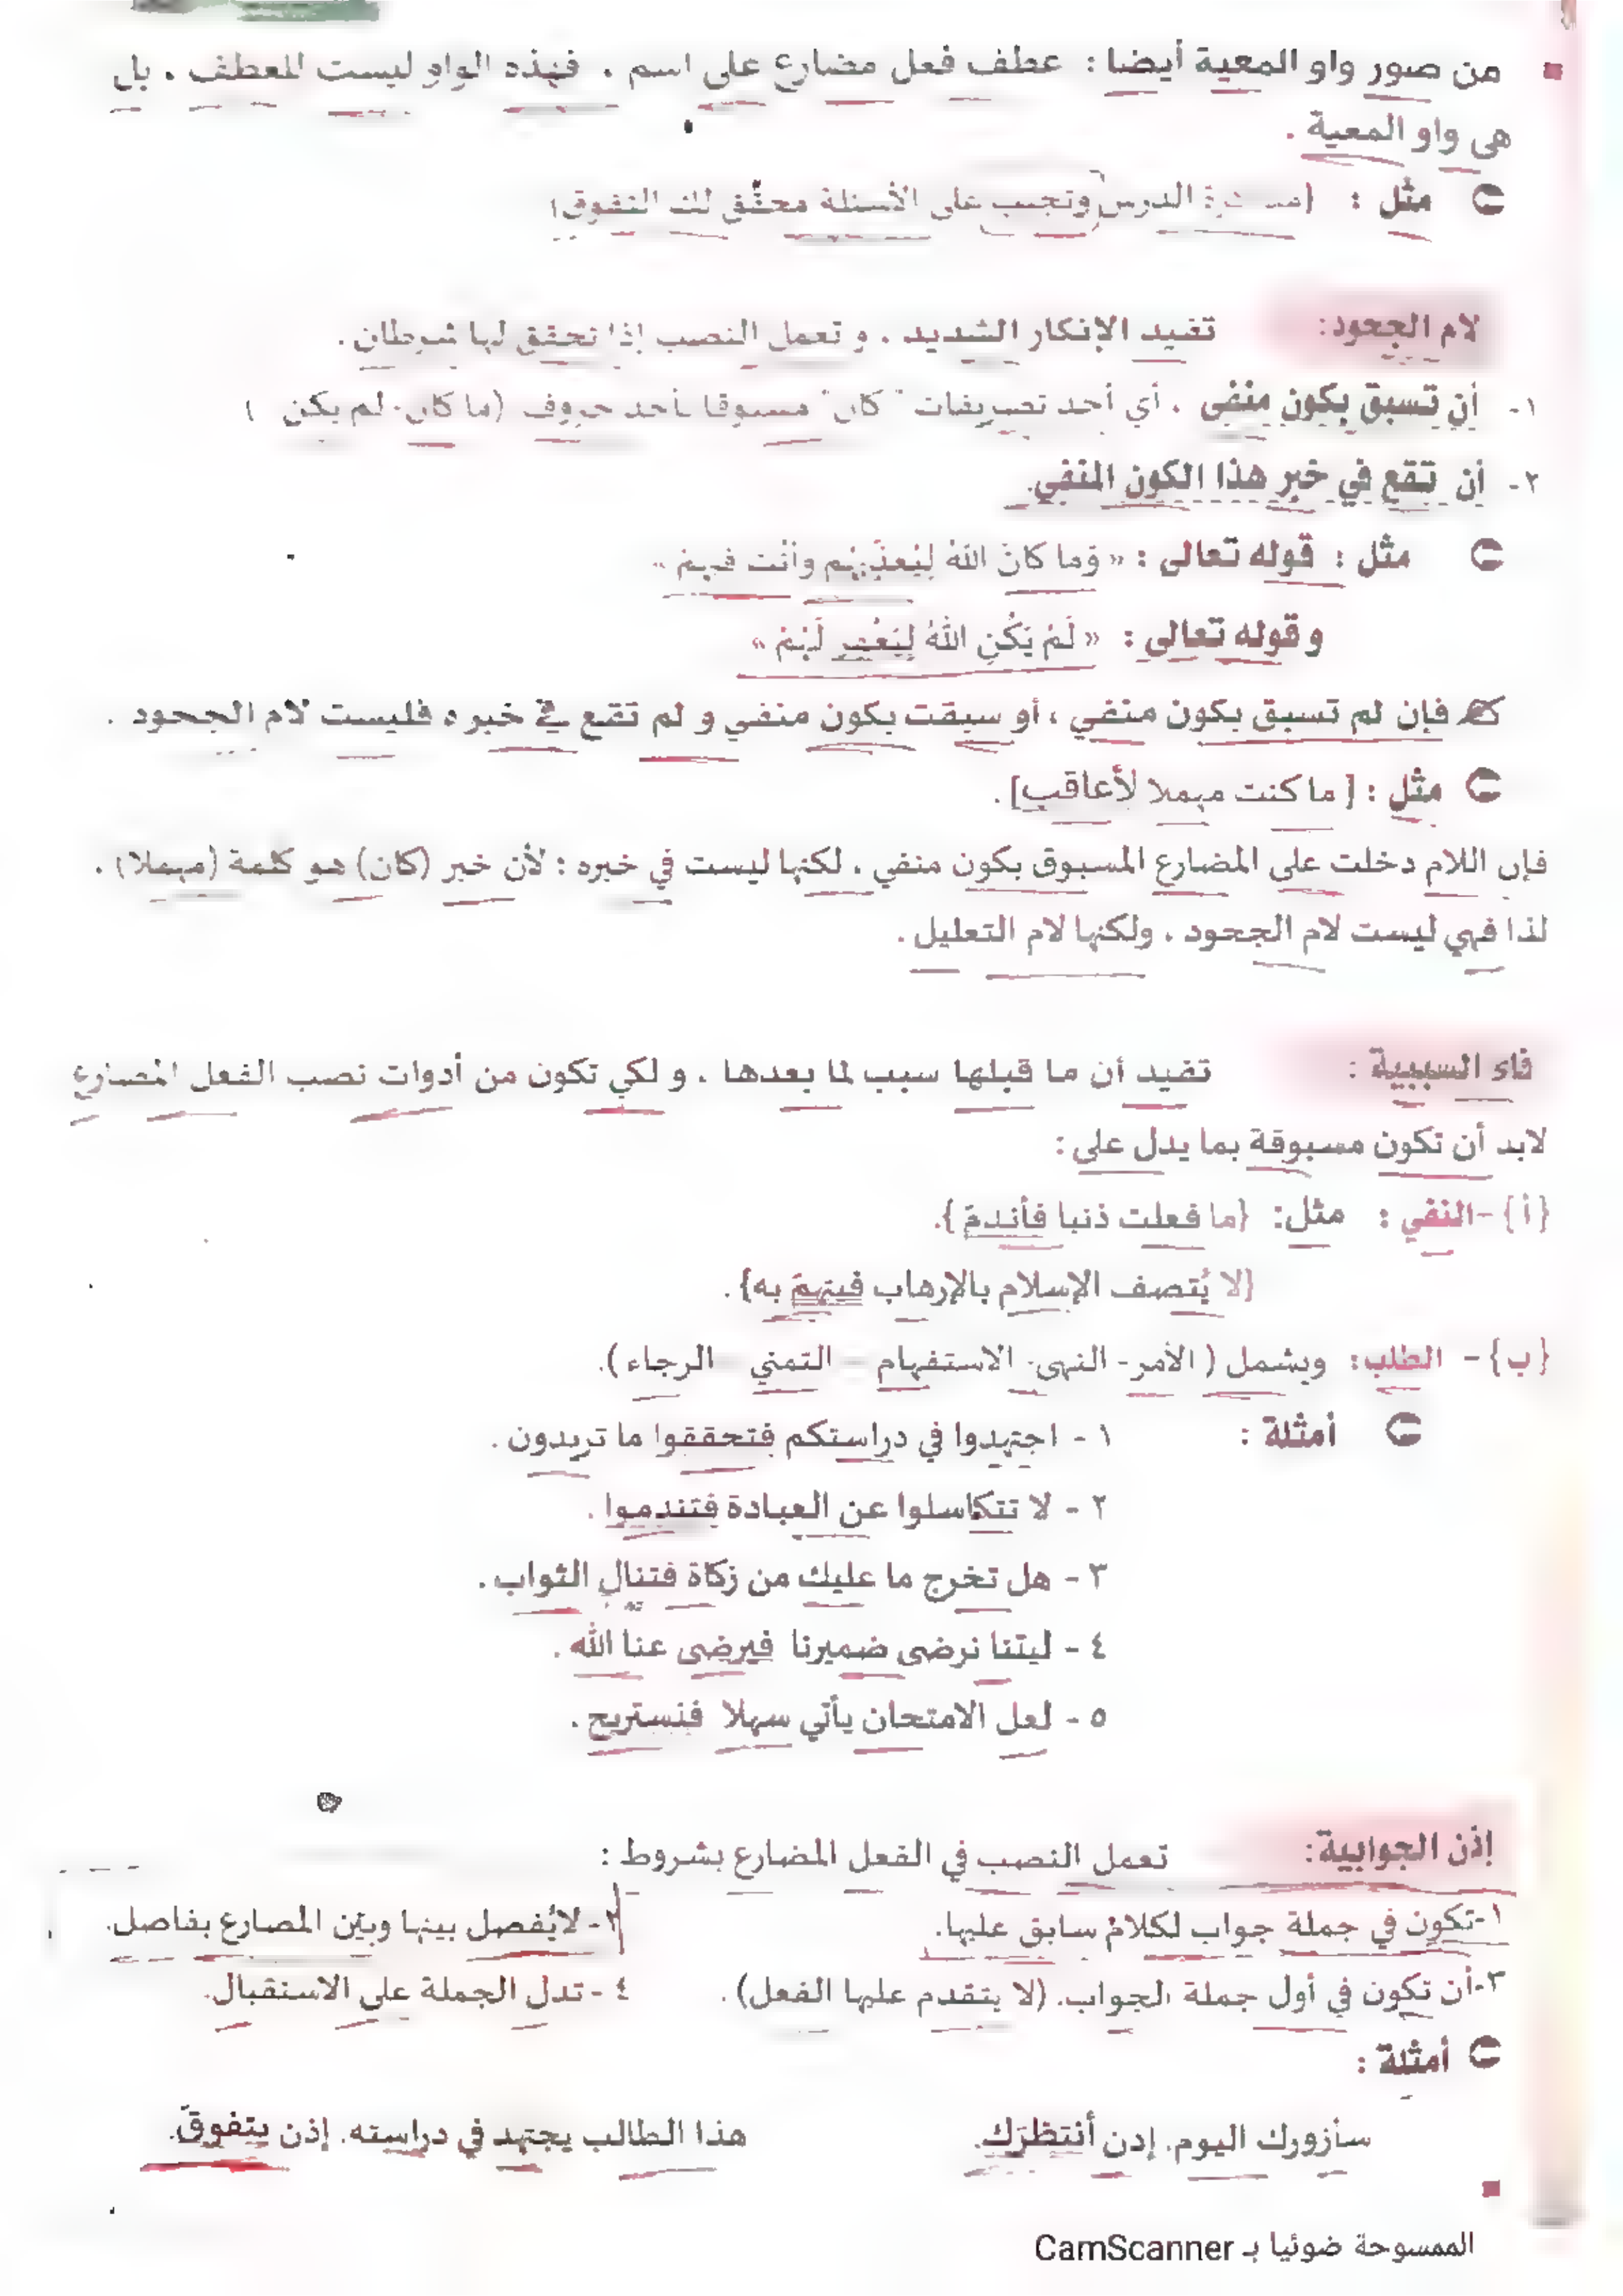 من صور واو المعية أيضا : عطف فعل مضارع على اسم . فهذه الواو ليست للعطف . بل
هى واو المعية .
مثل : الدرس وتجيب على الأسئلة محقّق لك التفوق
لام الجحود: تفيد الإنكار الشديد . و تعمل النصب إذا تحقق لها شرطان .
١- أن تسبق بكون منفى . أي أحد تصريفات " كان" مسبوقا بأحد حروف (ما كان- لم يكن )
٢- أن تقع في خبر هذا الكون المنفي.
مثل : قوله تعالى : « وَما كانَ اللهُ لِيُعذِّبَهُم وأنْت فيهمْ »
و قوله تعالى : « لَمْ يَكُنِ اللهُ لِيَغْفِر لَهُمْ »
فإن لم تسبق بكون منفي ، أو سبقت بكون منفي و لم تقع في خبره فليست لام الجحود .
مثل : [ ما كنت مهملا لأعاقب] .
فإن اللام دخلت على المضارع المسبوق بكون منفي . لكنها ليست في خبره : لأن خبر (كان) هو كلمة (مهملا) .
لذا فهي ليست لام الجحود . ولكنها لام التعليل .
فاء السببية : تفيد أن ما قبلها سبب لما بعدها . و لكي تكون من أدوات نصب الفعل المضارع
لابد أن تكون مسبوقة بما يدل على :
{أ} -النفي : مثل: {ما فعلت ذنبا فأندمَ}.
{لا يُتصف الإسلام بالإرهاب فيتهمَ به} .
{ب} - الطلب: ويشمل ( الأمر- النهى- الاستفهام - التمني - الرجاء ).
أمثلة : ١ - اجتهدوا في دراستكم فتحققوا ما تريدون .
٢ - لا تتكاسلوا عن العبادة فتندموا .
٣ - هل تخرج ما عليك من زكاة فتنال الثواب .
٤ - ليتنا نرضى ضميرنا فيرضى عنا الله .
٥ - لعل الامتحان يأتي سهلا فنستريح .
إذن الجوابية: تعمل النصب في الفعل المضارع بشروط :
١-تكون في جملة جواب لكلام سابق عليها. ٢- لايُفصل بينها وبين المضارع بفاصل.
٣-أن تكون في أول جملة الجواب. (لا يتقدم عليها الفعل) . ٤ - تدل الجملة على الاستقبال.
أمثلة :
سأزورك اليوم. إذن أنتظرَك. هذا الطالب يجتهد في دراسته. إذن يتفوقَ.
الممسوحة ضوئيا بـ CamScanner